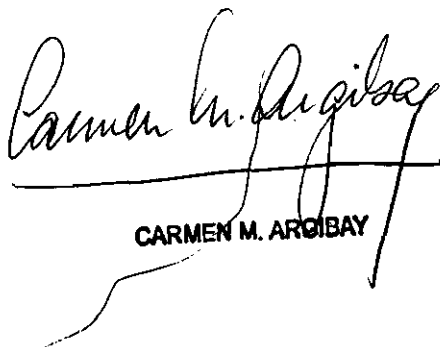 Carmen M. Argibay
CARMEN M. ARGIBAY